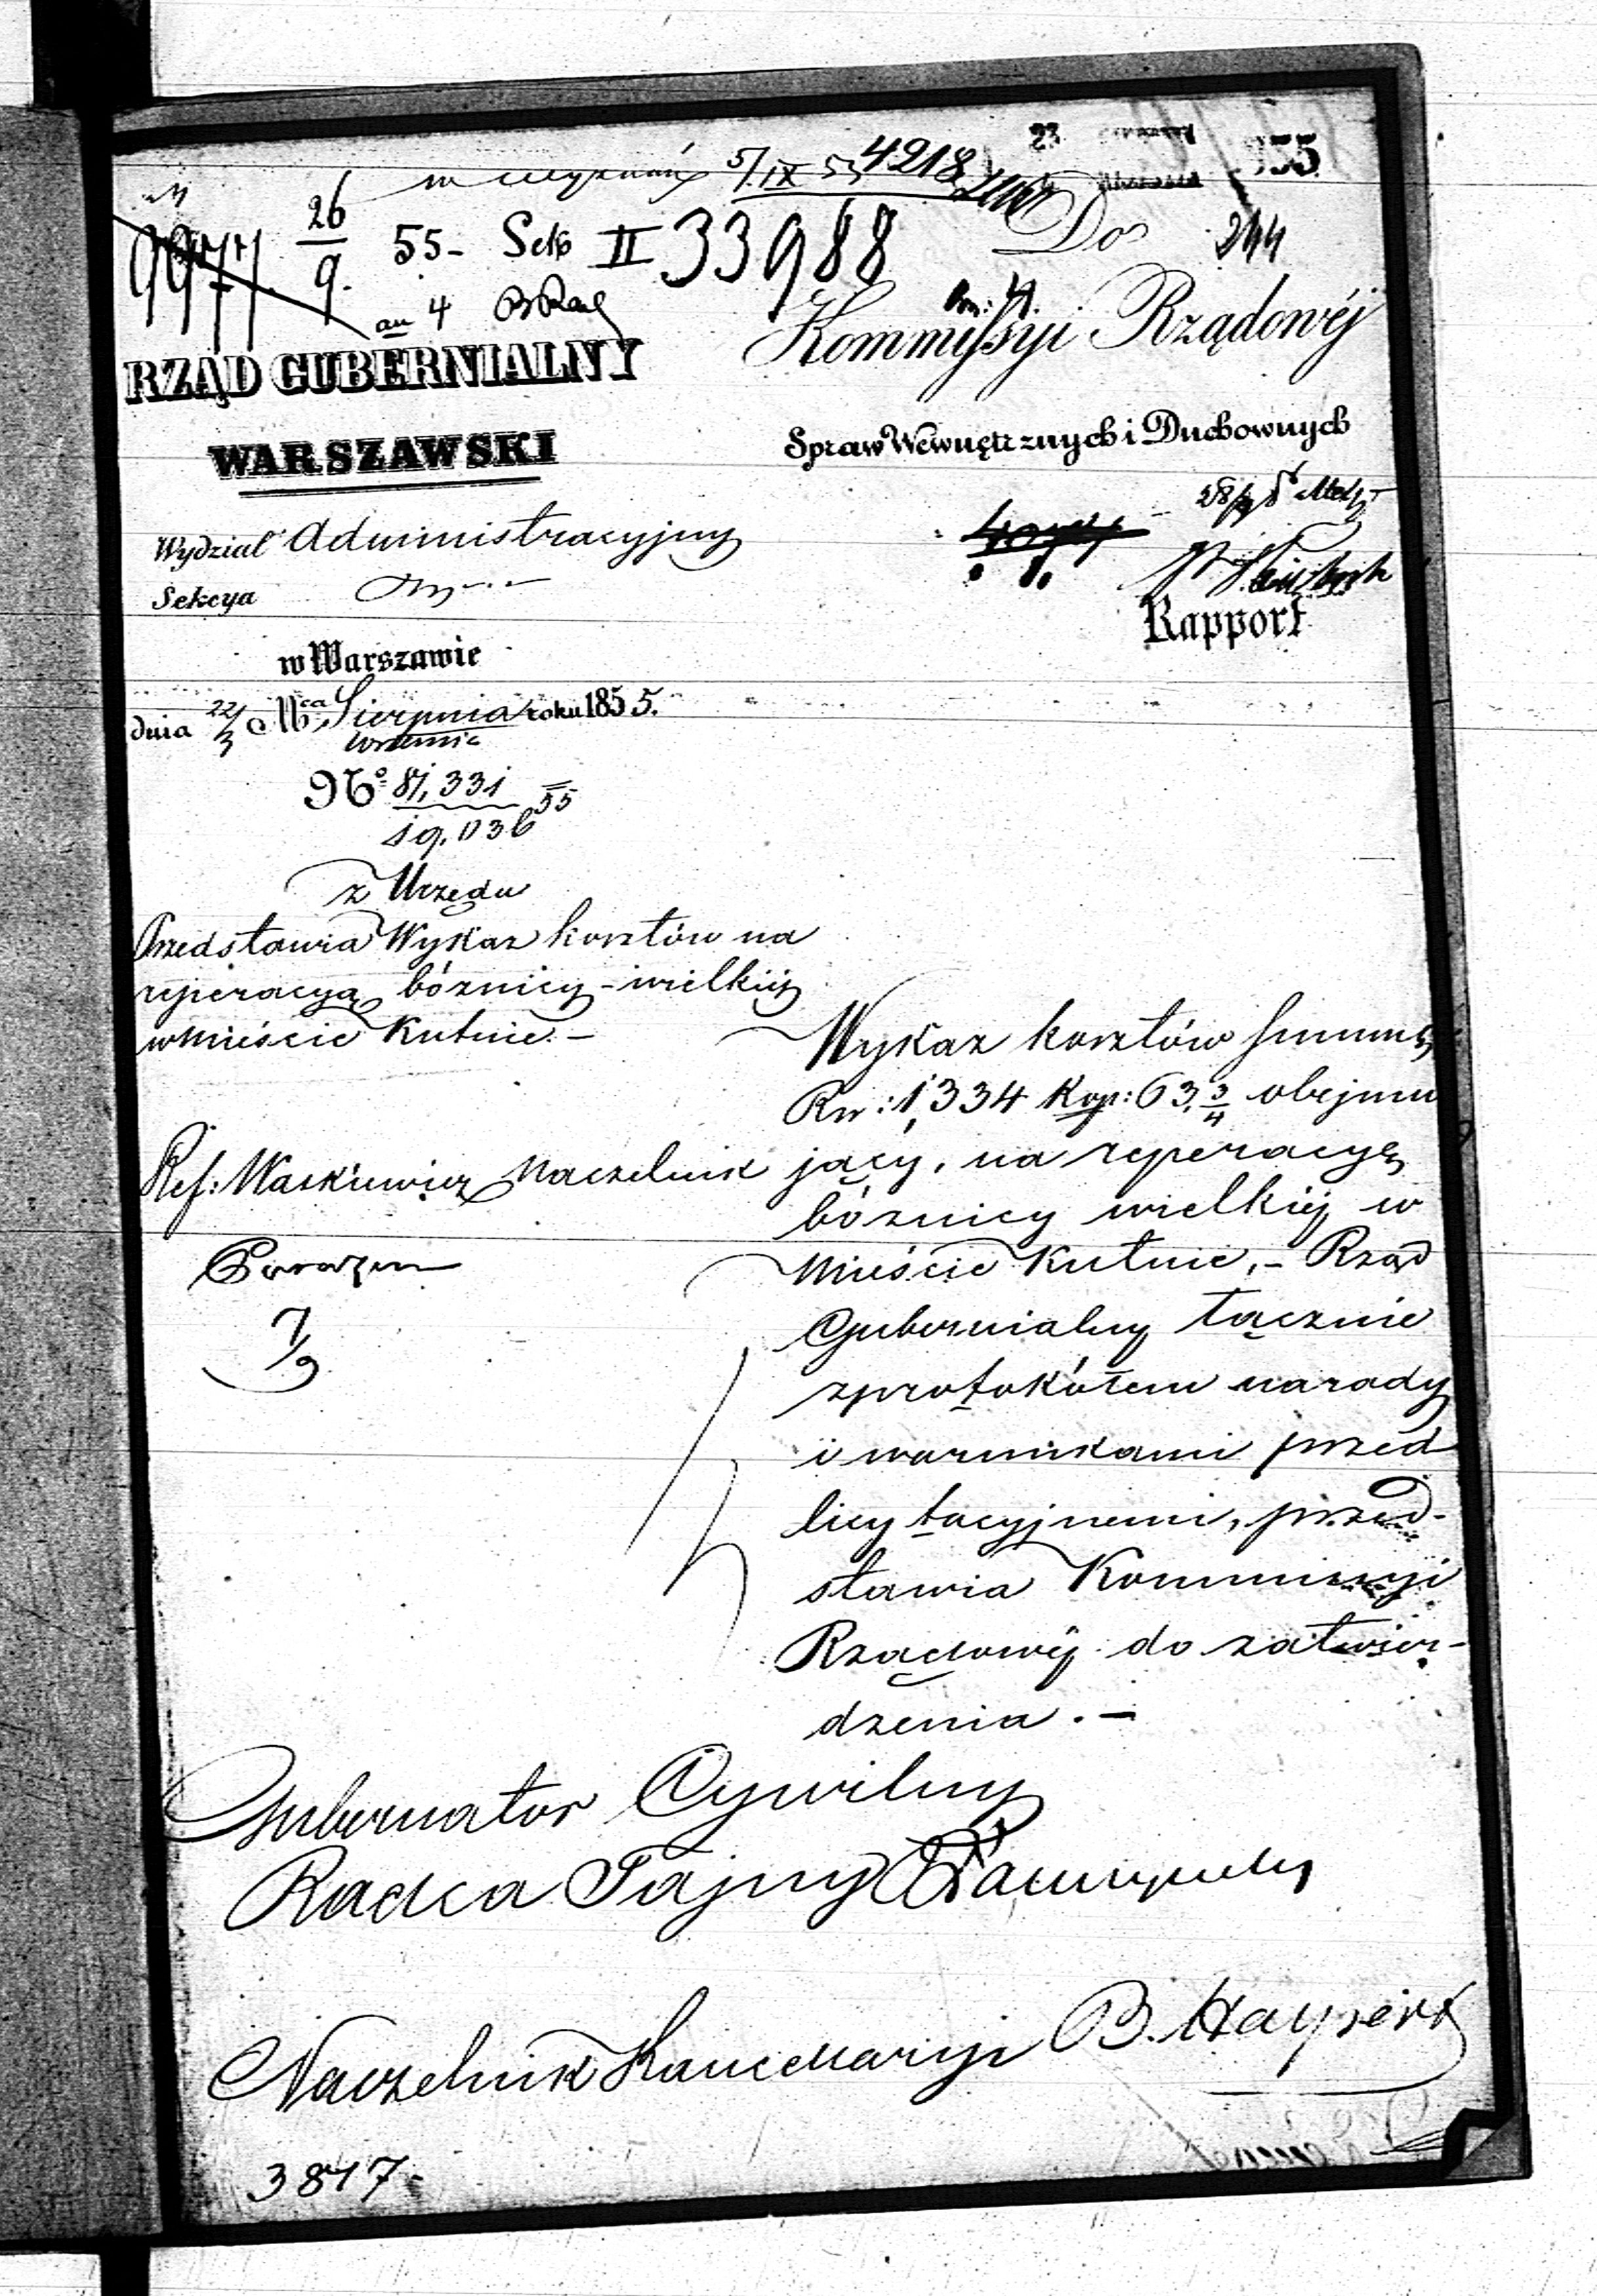 5/IX 55 4218
26/9. 55- Sek II 33988
Do 244
4
Kommissyi Rządowéj
RZĄD GUBERNIALNY
WARSZAWSKI
Spraw Wewnętrznych i Duchownych
Wydział Administracyjny
Sekcya
Rapport
w Warszawie
dnia 22/3 Mca Sierpnia roku 1855.
Września
No 81,331
19,036 55
z Urzędu
Przedstawia Wykaz kosztów na
reperacyą bóżnicy wielkiéj
w Mieście Kutnie.-
Wykaz kosztów summę
Rsr: 1,334 Kop: 63 3/4 obejmu
jący, na reperacyę
bóżnicy wielkiéj w
Mieście Kutnie,- Rząd
Gubernialny łącznie
z protokółem narady
i warunkami przed
licytacyjnemi, przed-
stawia Kommissyi
Rządowéj do zatwier-
dzenia.-
Ref: Waskiewicz Naczelnik
7/9
Gubernator Cywilny
Radca Tajny
Naczelnik Kancellaryi B.
3847